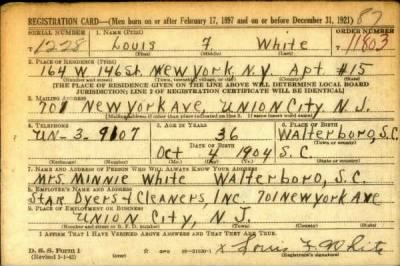 REGISTRATION CARD—(Men born on or after February 17, 1897 and on or before December 31, 1921) 87
SERIAL NUMBER 1. NAME (Print) ORDER NUMBER
1228 Louis F White 11803
(First) (Middle) (Last)
2. PLACE OF RESIDENCE (Print)
164 W 146 St. New York, N.Y. Apt #15
(Number and street) (Town, township, village, or city) (County) (State)
[THE PLACE OF RESIDENCE GIVEN ON THE LINE ABOVE WILL DETERMINE LOCAL BOARD
JURISDICTION; LINE 2 OF REGISTRATION CERTIFICATE WILL BE IDENTICAL]
3. MAILING ADDRESS
701 New York Ave, Union City N. J.
[Mailing address if other than place indicated on line 2. If same insert word same]
4. TELEPHONE 5. AGE IN YEARS 6. PLACE OF BIRTH
UN-3-9107 36 Walterboro, S.C.
DATE OF BIRTH (Town or county)
Oct 4 1904 S.C.
(Exchange) (Number) (Mo.) (Day) (Yr.) (State or country)
7. NAME AND ADDRESS OF PERSON WHO WILL ALWAYS KNOW YOUR ADDRESS
Mrs. Minnie White Walterboro, S.C.
8. EMPLOYER'S NAME AND ADDRESS
Star Dyers & Cleaners, Inc. 701 New York Ave
9. PLACE OF EMPLOYMENT OR BUSINESS
Union City, N. J.
(Number and street or R. F. D. number) (Town) (County) (State)
I AFFIRM THAT I HAVE VERIFIED ABOVE ANSWERS AND THAT THEY ARE TRUE.
D. S. S. Form 1 x Louis F. White
(Revised 1-1-42) (Registrant's signature)